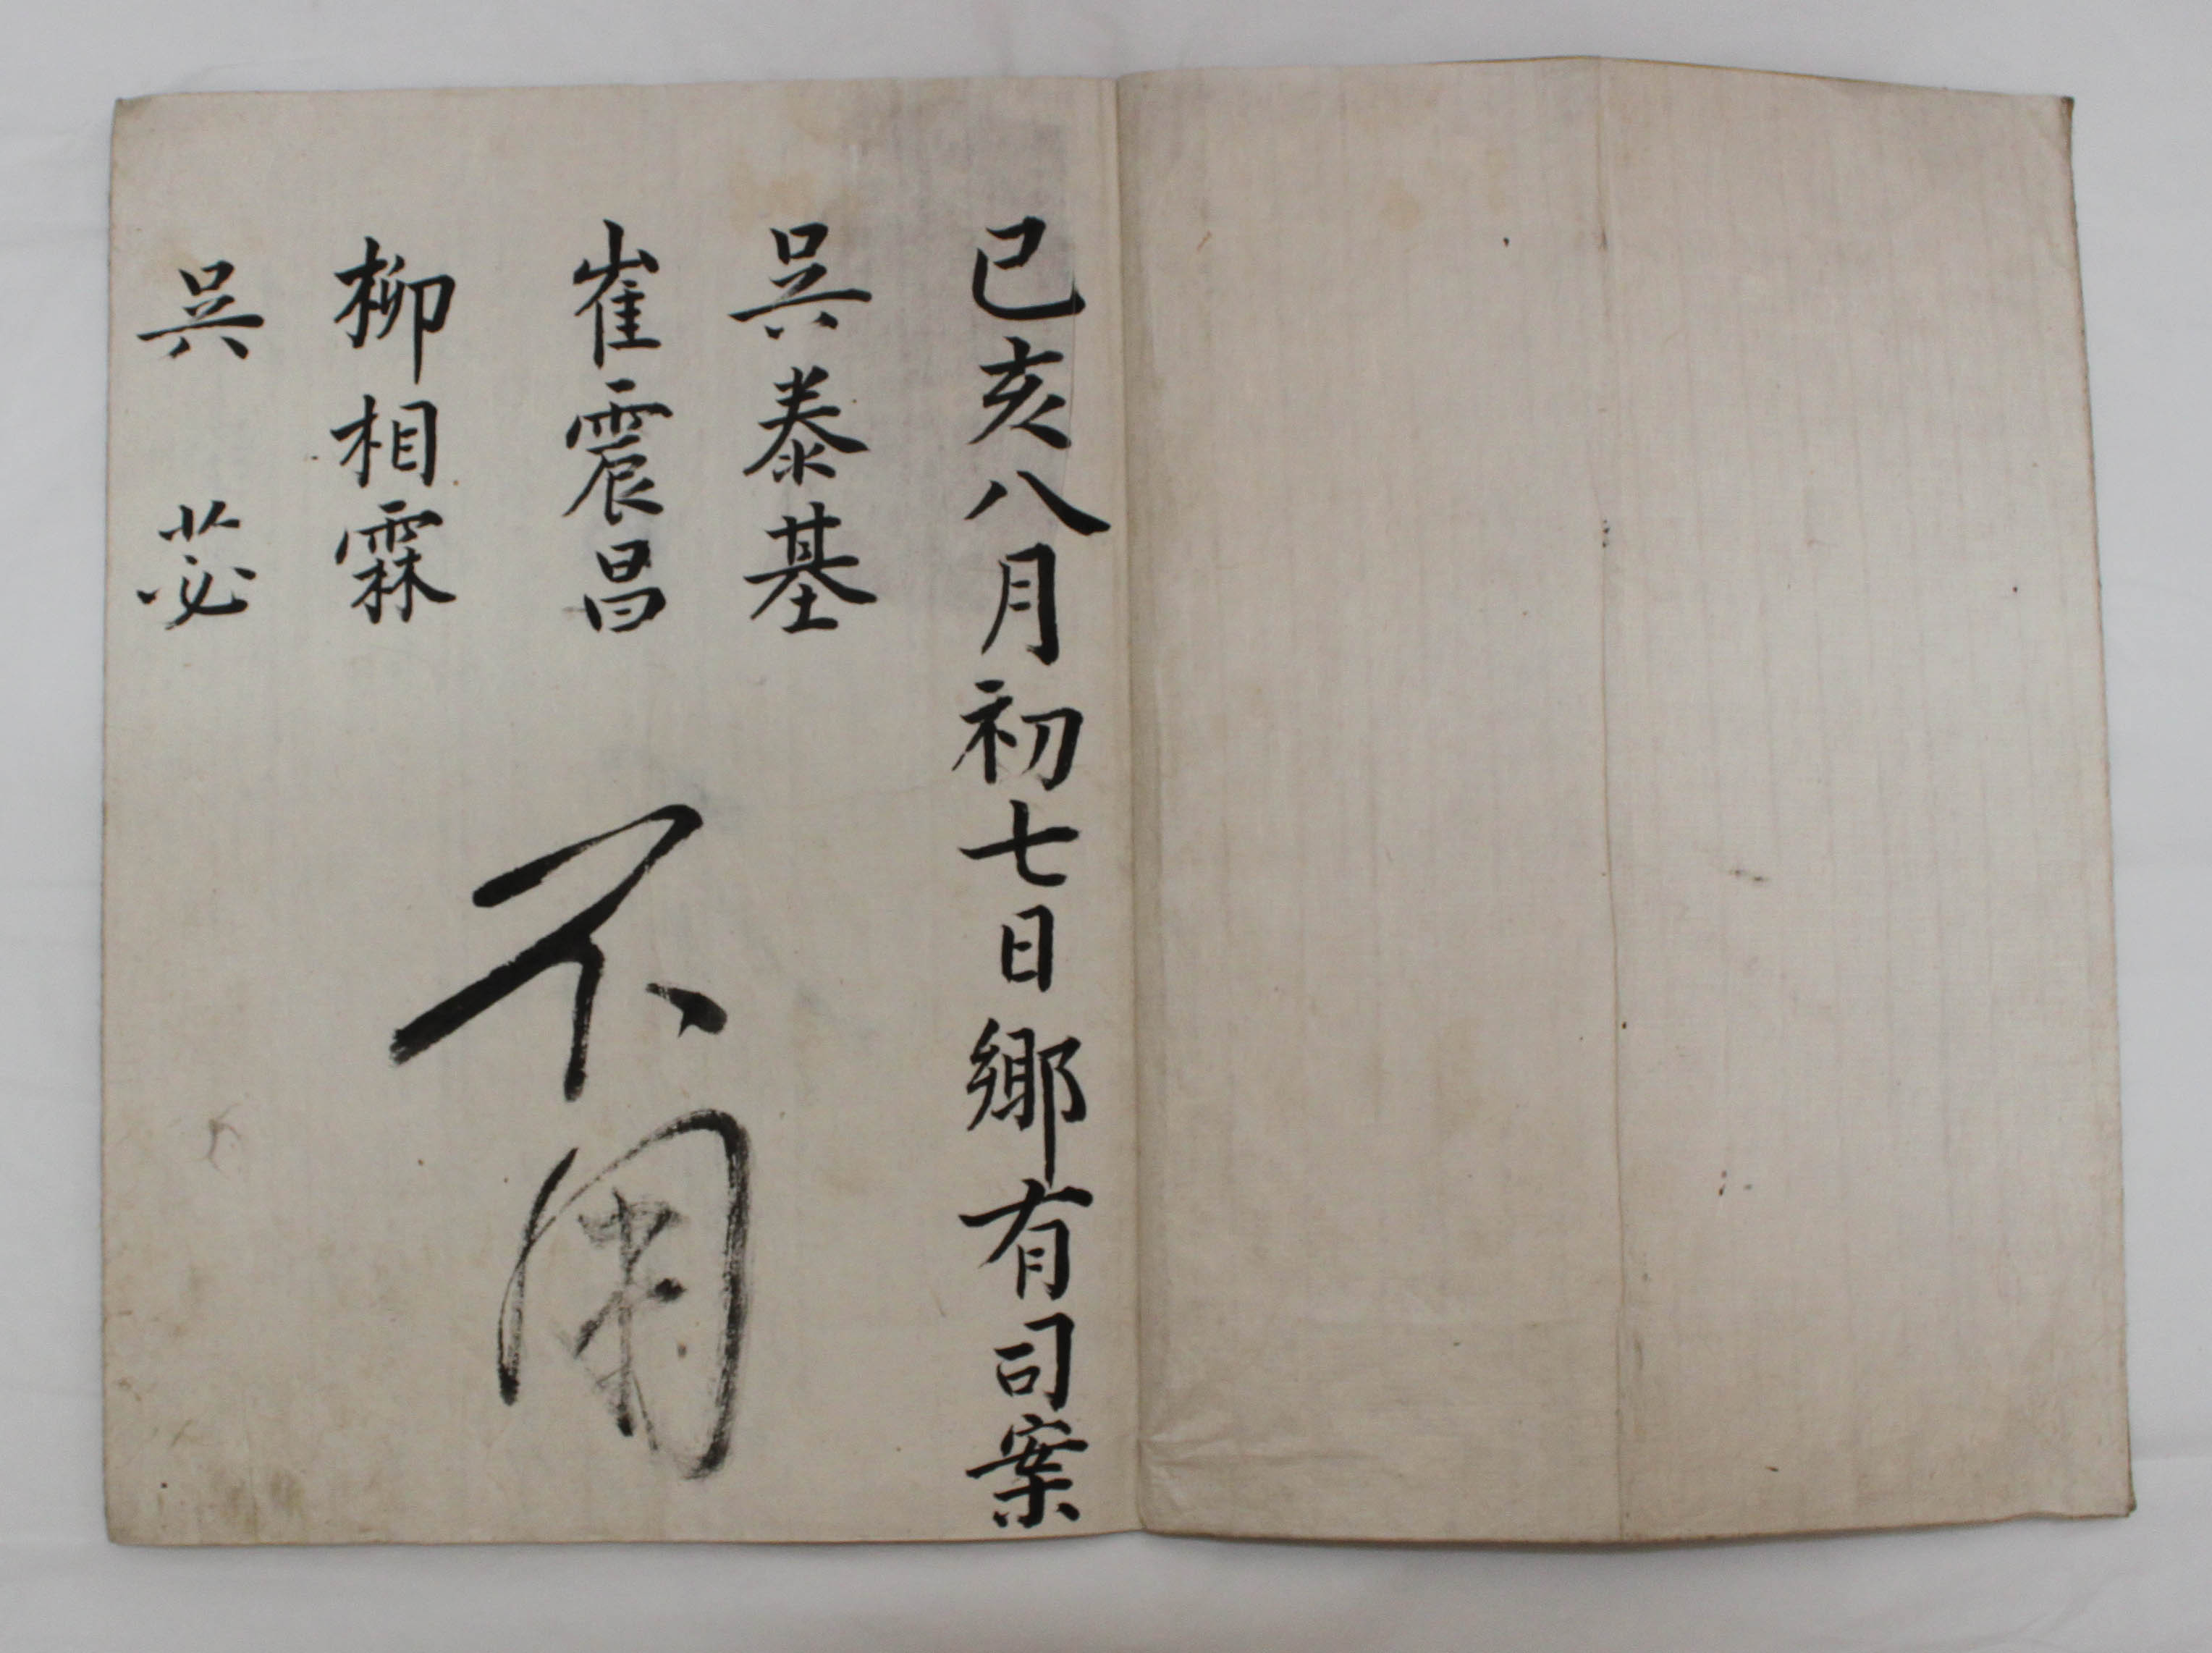 己亥八月初七日鄕有司案
吳泰基
崔震昌
柳相霖
吳苾
不用